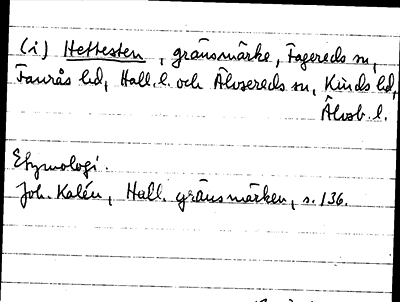 (i) Hettesten, gränsmärke, Fagereds sn,
Faurås hd, Hall. l. och Älvsereds sn, Kinds hd,
Älvsb. l.
Etymologi.
Joh. Kalén, Hall. gränsmärken, s. 136.